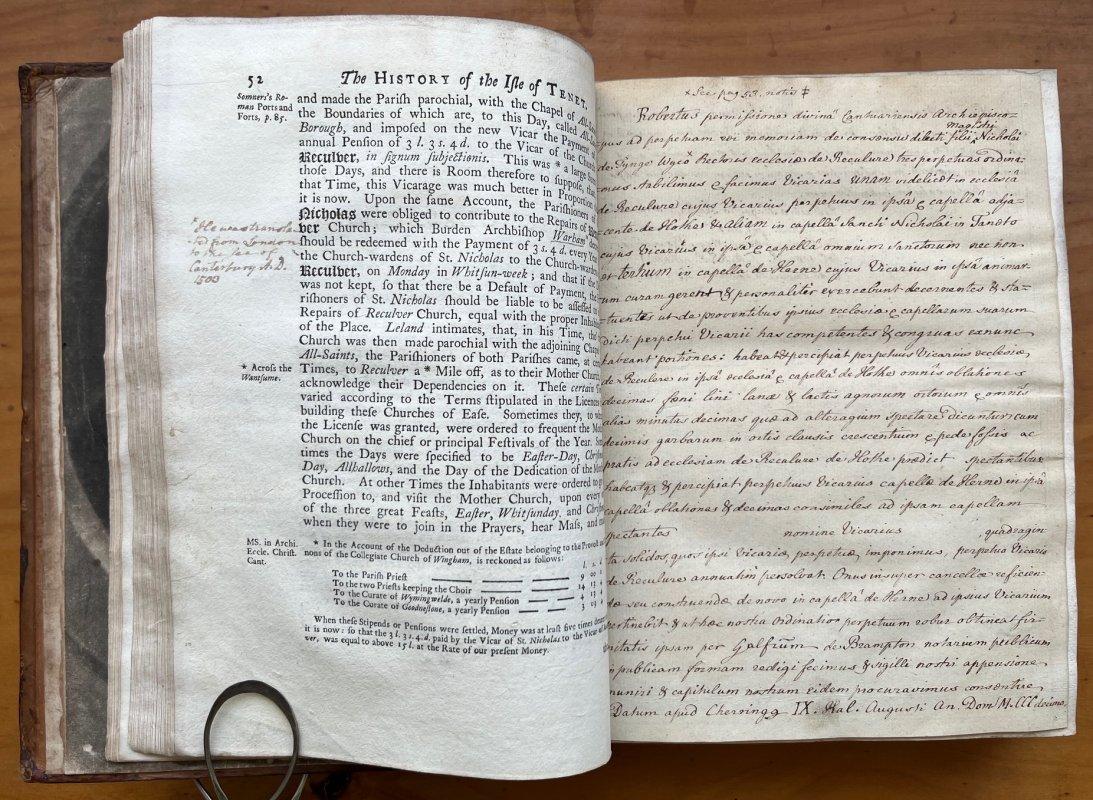 52
The HISTORY of the Iſle of TENET.
Somner's Ro-
man Ports and
Forts, p. 85.
and made the Pariſh parochial, with the Chapel of All-
the Boundaries of which are, to this Day, called All-
Borough, and impoſed on the new Vicar the Payment
annual Penſion of 3 l. 3 s. 4 d. to the Vicar of the Church
Reculver, in ſignum ſubjectionis. This was * a large
thoſe Days, and there is Room therefore to ſuppoſe, that
that Time, this Vicarage was much better in Proportion
it is now. Upon the ſame Account, the Pariſhioners of
Nicholas were obliged to contribute to the Repairs of
ver Church; which Burden Archbiſhop Warham
ſhould be redeemed with the Payment of 3 s. 4 d. every Year
the Church-wardens of St. Nicholas to the Church-wardens
Reculver, on Monday in Whitſun-week; and that if the
was not kept, ſo that there be a Default of Payment, the
riſhoners of St. Nicholas ſhould be liable to be aſſeſſed to
Repairs of Reculver Church, equal with the proper
of the Place. Leland intimates, that, in his Time,
Church was then made parochial with the adjoining Chapel
All-Saints, the Pariſhioners of both Pariſhes came, at
Times, to Reculver a * Mile off, as to their Mother Church
acknowledge their Dependencies on it. Theſe certain
varied according to the Terms ſtipulated in the Licences
building theſe Churches of Eaſe. Sometimes they, to
the Licenſe was granted, were ordered to frequent the
Church on the chief or principal Feſtivals of the Year.
times the Days were ſpecified to be Eaſter-Day,
Day, Allhallows, and the Day of the Dedication of the
Church. At other Times the Inhabitants were ordered to
Proceſſion to, and viſit the Mother Church, upon every
of the three great Feaſts, Eaſter, Whitſunday, and
when they were to join in the Prayers, hear Maſs, and
* He was transla-
ted from London
to the See of
Canterbury A.D.
1503
* Acroſs the
Wantſume.
MS. in Archi.
Eccle. Chriſt.
Cant.
* In the Account of the Deduction out of the Eſtate belonging to the Provoſt
nons of the Collegiate Church of Wingham, is reckoned as follows:
l. s. d.
To the Pariſh Prieſt 9 00
To the two Prieſts keeping the Choir 14 13 4
To the Curate of Wymingwelde, a yearly Penſion 4 13 4
To the Curate of Goodneſtone, a yearly Penſion 3 03 4
When theſe Stipends or Penſions were ſettled, Money was at leaſt five times
it is now: ſo that the 3 l. 3 s. 4 d. paid by the Vicar of St. Nicholas to the Vicar of
ver, was equal to above 15 l. at the Rate of our preſent Money.
* See pag 53. notis ‡
Robertus permissione divinâ Cantuariensis Archiepisco-
magistri
pus ad perpetuam rei memoriam de consensu dilecti filii Nicholai
de Tynge Wyco Rectoris ecclesiæ de Reculure tres perpetuas ordina-
mus stabilimus & facimus Vicarias unam videlicet in ecclesiâ
de Reculure cujus Vicarius perpetuus in ipsâ & capellâ adja-
cente de Hothe & aliam in capellâ Sancti Nicholai in Taneto
cujus Vicarius in ipsâ & capellâ omnium Sanctorum nec non
et tertium in capellâ de Herne cujus Vicarius in ipsâ animar-
um curam gerent & personaliter exercebunt decernentes & sta-
tuentes ut de proventibus ipsius ecclesiæ & capellarum suarum
dicti perpetui Vicarii has competentes & congruas ex nunc
habeant portiones: habeat & percipiat perpetuus Vicarius ecclesiæ
de Reculure in ipsâ ecclesiâ & capellâ de Hothe omnes oblationes
decimas foeni lini lanæ & lactis agnorum ortorum & omnes
alias minutas decimas quæ ad alteragium spectare dicuntur cum
decimis garbarum in ortis clausis crescentium & pede fossis ac
pratis ad ecclesiam de Reculure de Hothe prædict spectantibus
habeatqz & percipiat perpetuus Vicarius capellæ de Herne in ipsâ
capellâ oblationes & decimas consimiles ad ipsam capellam
spectantes nomine Vicarius quadragin
ta solidos, quos ipsi Vicariæ perpetuæ imponimus, perpetuo Vicario
de Reculure annuatim persolvat. Onus insuper cancellæ reficien-
dæ seu construendæ de novo in capellâ de Herne ad ipsius Vicarium
pertinebit & ut hæc nostra Ordinatio perpetuum robur obtineat fir-
mitatis ipsam per Galfrium de Brampton notarium publicum
in publicam formam redigi fecimus & sigilli nostri appensione
muniri & capitulum nostrum eidem procuravimus consentire
Datum apud Cherringg IX. Kal. Augusti An Dom¹ M.CCC decimo